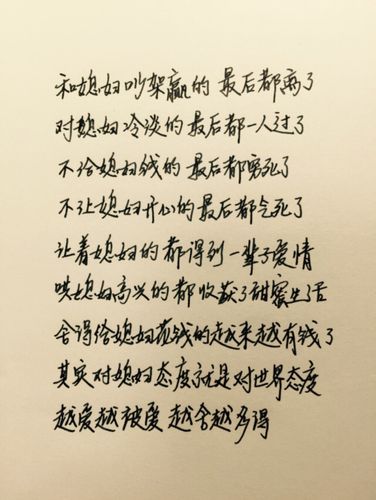 和媳妇吵架赢的 最后都离了
对媳妇冷淡的最后都一人过了
不给媳妇钱的 最后都穷死了
不让媳妇开心的最后都气死了
让着媳妇的都得到一辈子爱情
哄媳妇高兴的都收获了甜蜜生活
舍得给媳妇花钱的越来越有钱了
其实对媳妇态度就是对世界态度
越爱越被爱 越舍越多得